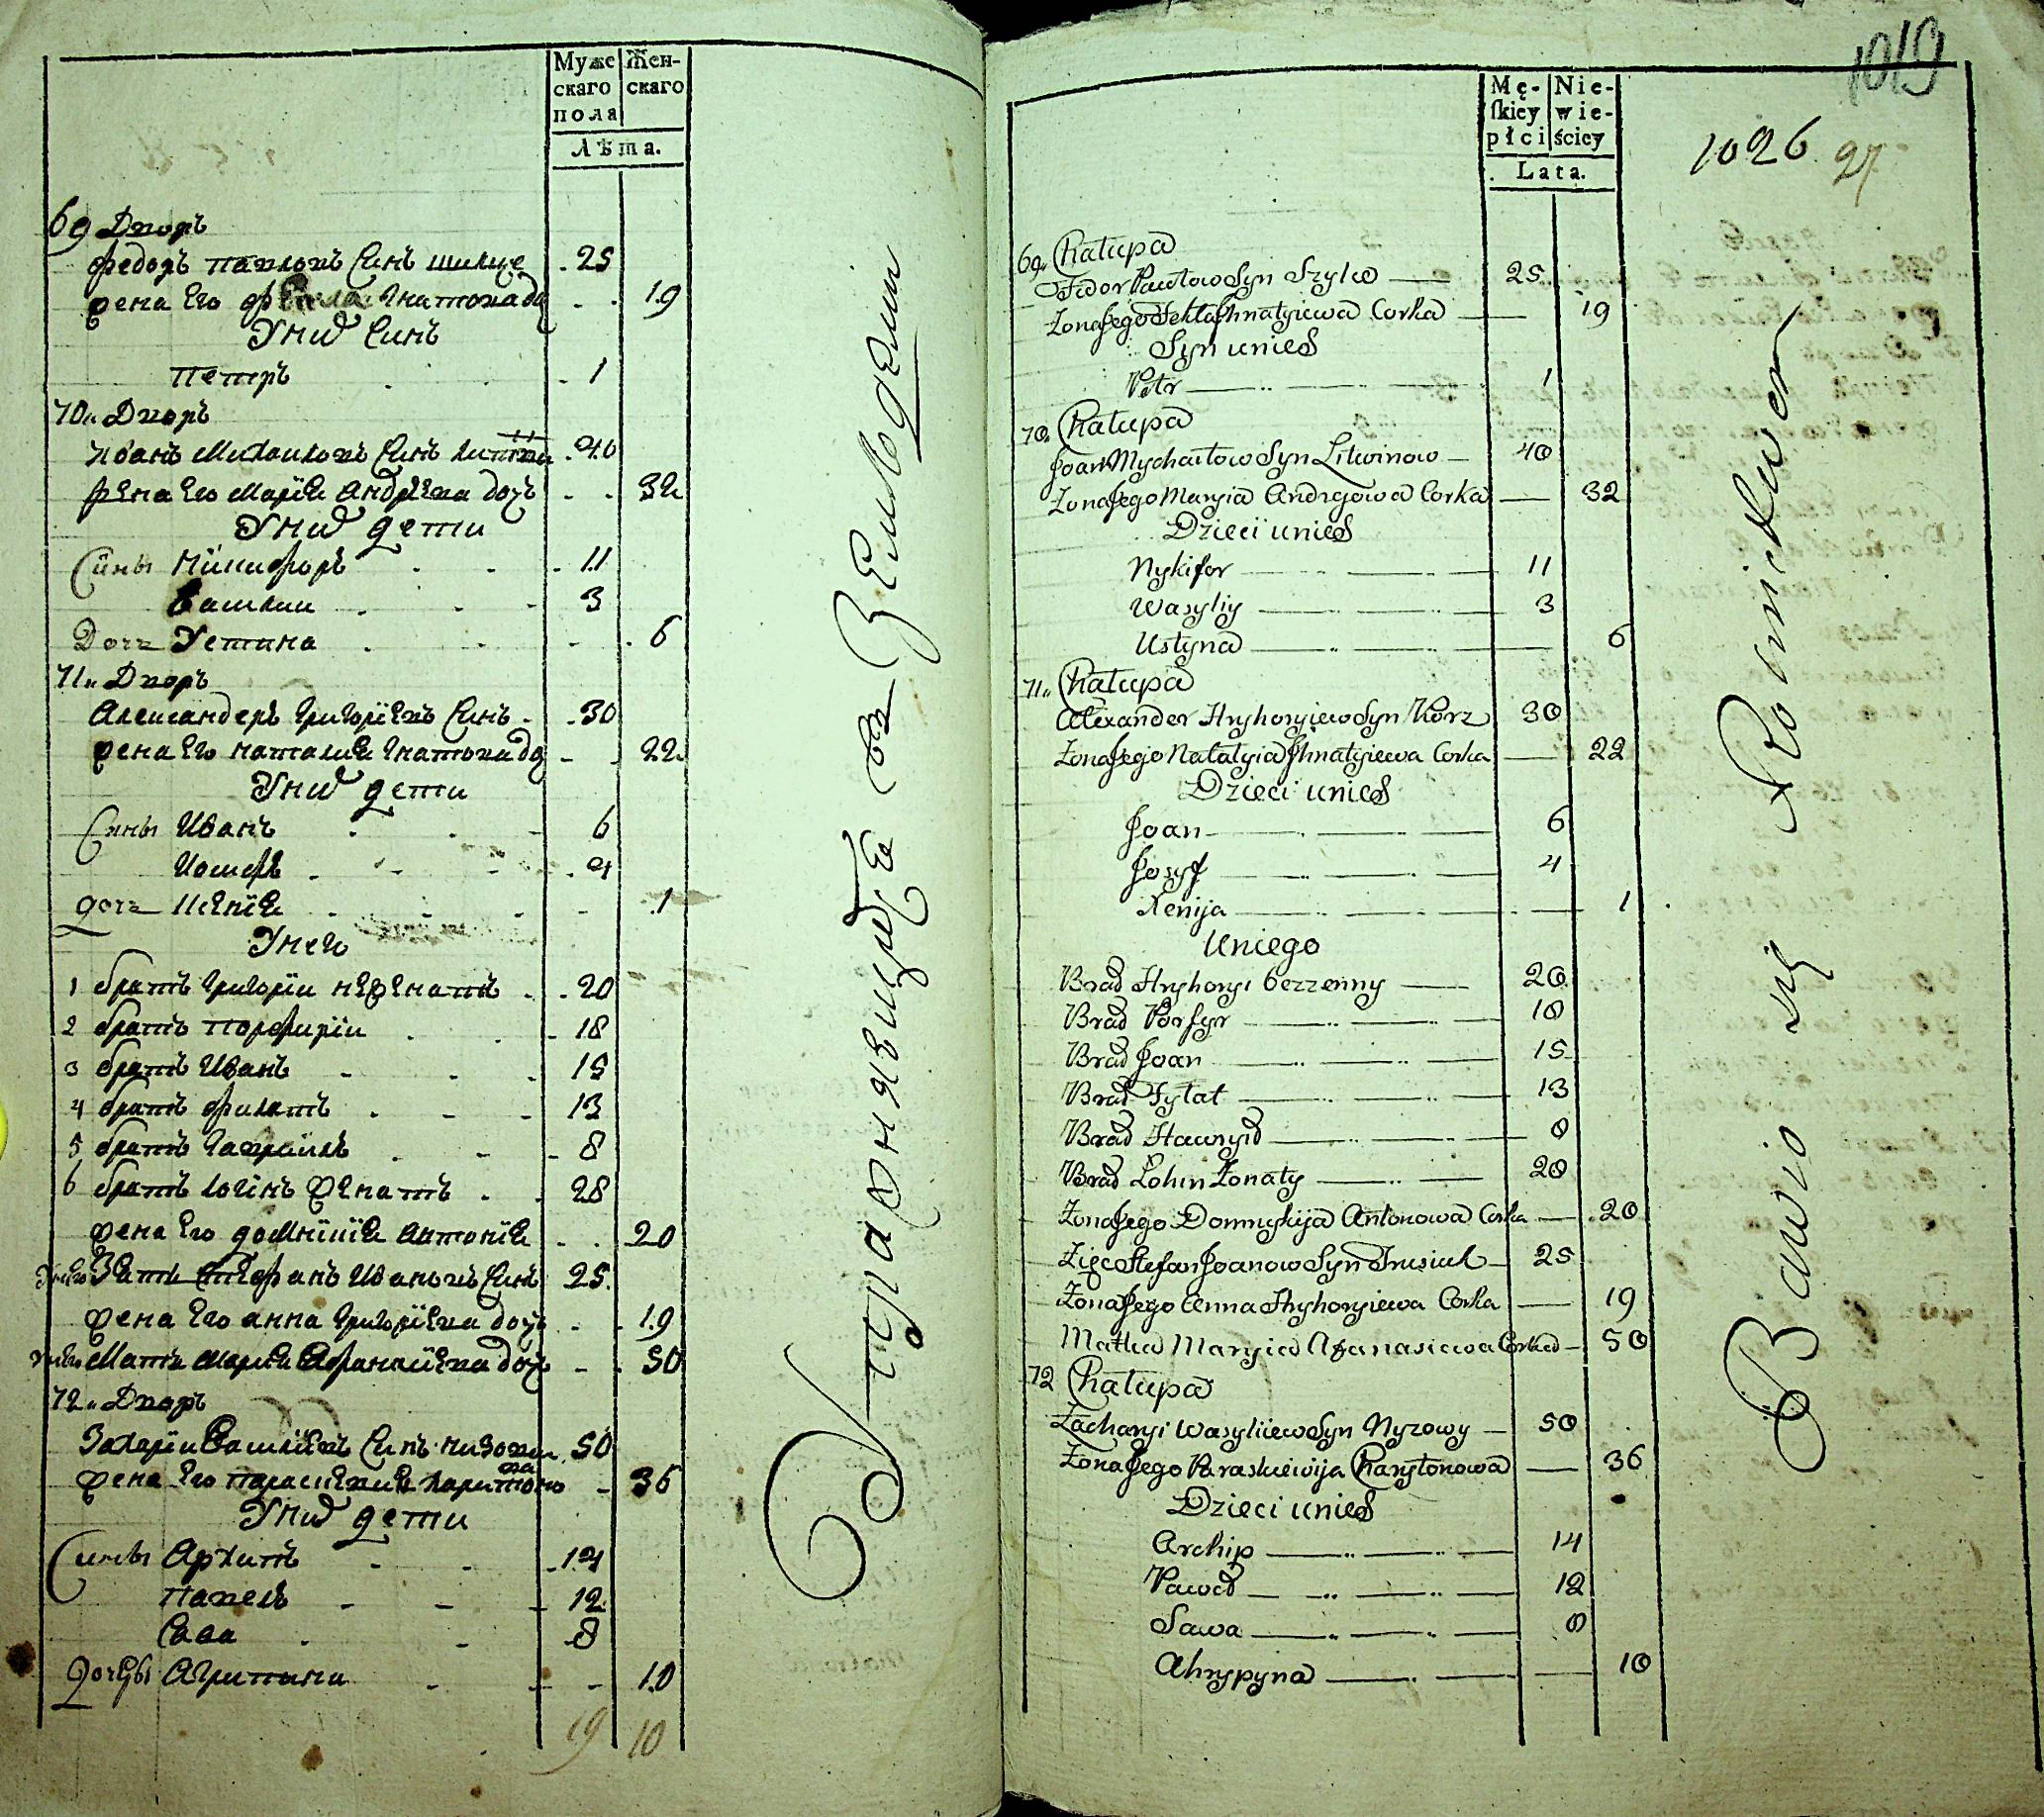 Муже
скаго
пола
Жен-
скаго
Лѣта.
69 Дворъ
Федоръ Павловъ Синъ Шилце 25
жена Его Игнатова до 19
У них Синъ
Петръ 1
70 Дворъ
Иванъ Михаиловъ Синъ 40
жена Его Марія Андрѣева дочъ 32
У них дети
Сины Никифоръ 11
Василии 3
Дочь Устина 6
71 Дворъ
Александеръ Григоріевъ Синъ 30
жена Его Наталія Игнатова до 22
У них дети
Сины Иванъ 6
Иосифъ 4
дочь Ксенія 1
У него
1 братъ Григоріи нежен 20
2 братъ Порфиріи 18
3 братъ Иванъ 15
4 братъ Филатъ 13
5 братъ Гавріилъ 8
6 братъ Логінъ женатъ 28
жена Его Домнікія Антонія 20
Зять Стефанъ Ивановъ Синъ 25
жена Его Анна Григоріева дочъ 19
Мать Марія Афанасіева дочъ 50
72 Дворъ
Захаріи Василіевъ Синъ Низовии 50
жена Его Параскевия Харитоно
ва 36
У них дети
Сины Архипъ 14
Павелъ 12
Сава 8
дочеры Агрипина 10
19 10
Староняецце въ Земледелии
1019
1026 27
Mę-
skiey
płci
Nie-
wie-
ściey
Lata.
69 Chałupa
Fedor Pawłow Syn Szylco 25
Zona Jego Tekla Jhnatyiewa Corka 19
Syn unich
Petr 1
70 Chałupa
Joan Mychaiłow Syn Litwinow 40
Zona Jego Maryia Andryowa Corka 32
Dzieci unich
Nykifor 11
Wasyliy 3
Ustyna 6
71 Chałupa
Alexander Hryhoryiew Syn Korz 30
Zona Jego Natalyia Jhnatyiewa Corka 22
Dzieci unich
Joan 6
Josyf 4
Xenija 1
Uniego
Brad Hryhoryi bezzenny 20
Brad Porfyr 18
Brad Joan 15
Brad Fylat 13
Brad Hawryło 8
Brad Lohin Zonaty 28
Zona Jego Domnykija Antonowa Corka 20
Zięc Stefan Joanow Syn 25
Zona Jego Anna Hryhoryiewa Corka 19
Matka Maryia Afanasiewa Corka 50
72 Chałupa
Zacharyi Wasyliiew Syn Nyzowy 50
Zona Jego Paraskiewija Charytonowa 36
Dzieci unich
Archip 14
Paweł 12
Sawa 8
Ahrypyna 10
Bawio się Rolnictwem